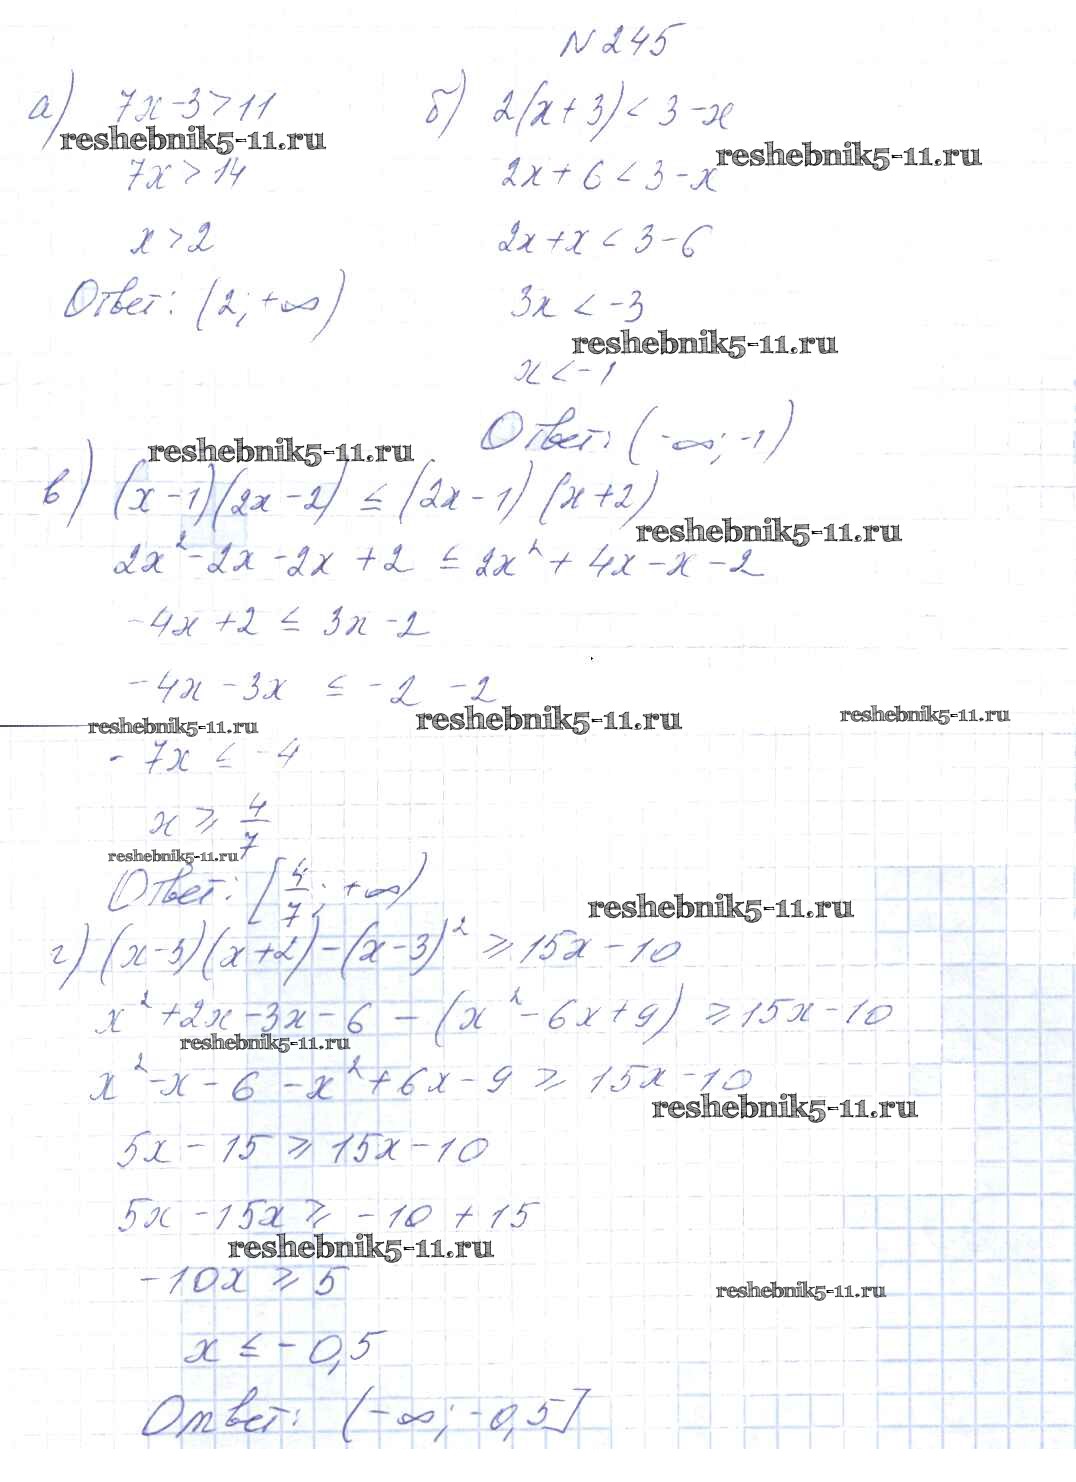 N 245
а) 7x-3>11
reshebnik5-11.ru
7x>14
x>2
Ответ: (2; +∞)
б) 2(x+3)<3-x
reshebnik5-11.ru
2x+6<3-x
2x+x<3-6
3x<-3
reshebnik5-11.ru
x<-1
Ответ: (-∞; -1)
reshebnik5-11.ru
в) (x-1)(2x-2)≤(2x-1)(x+2)
reshebnik5-11.ru
2x²-2x-2x+2≤2x²+4x-x-2
-4x+2≤3x-2
-4x-3x≤-2-2
reshebnik5-11.ru reshebnik5-11.ru reshebnik5-11.ru
-7x≤-4
x≥4/7
reshebnik5-11.ru
Ответ: [4/7; +∞)
reshebnik5-11.ru
г) (x-3)(x+2)-(x-3)²≥15x-10
x²+2x-3x-6-(x²-6x+9)≥15x-10
reshebnik5-11.ru
x²-x-6-x²+6x-9≥15x-10
reshebnik5-11.ru
5x-15≥15x-10
5x-15x≥-10+15
reshebnik5-11.ru
-10x≥5
reshebnik5-11.ru
x≤-0,5
Ответ: (-∞; -0,5]